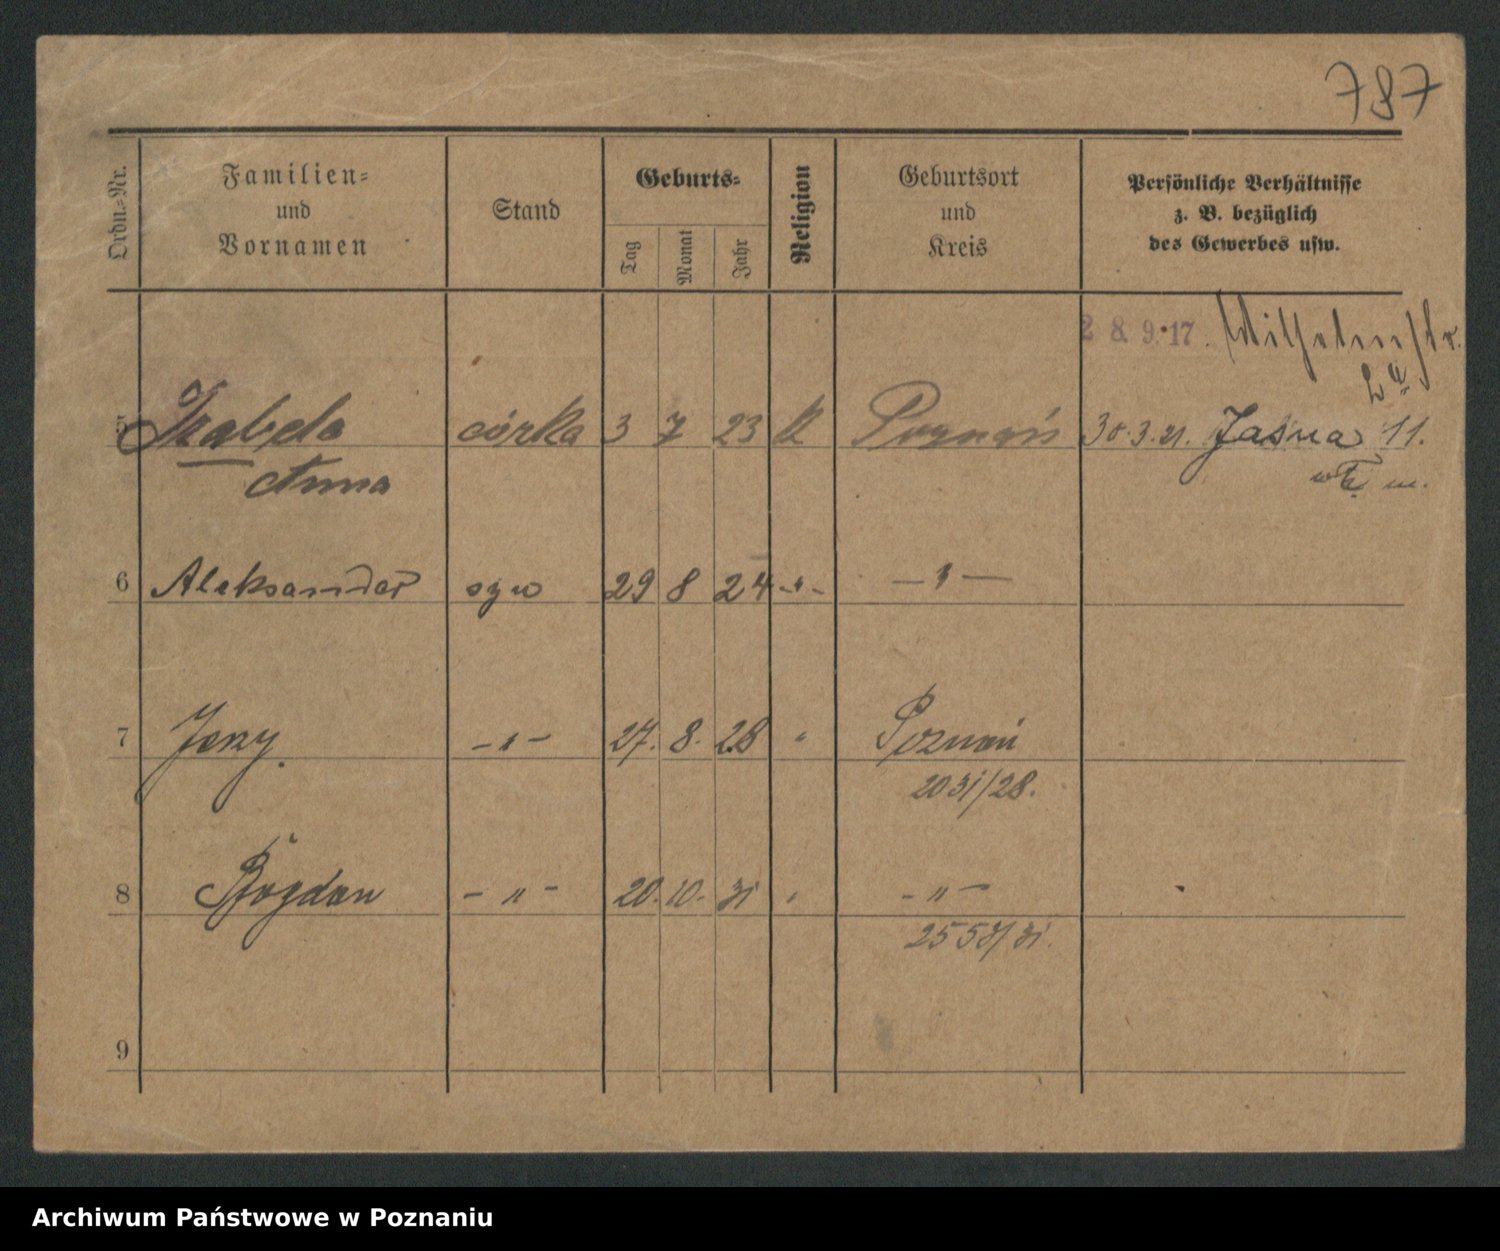 787
Ordn.-Nr.
Familien-
und
Vornamen
Stand
Geburts-
Tag
Monat
Jahr
Religion
Geburtsort
und
Kreis
Persönliche Verhältnisse
z. B. bezüglich
des Gewerbes usw.
28.9.17. Wilhelmstr.
2a
5 Izabela córka 3 7 23 K Poznań 30.3.21. Jasna 11.
Anna
6 Aleksander syn 29 8 24 -"- -"-
7 Jerzy. -"- 27. 8. 28 " Poznań
2031/28.
8 Bogdan -"- 20. 10. 31 " -"-
2557/31.
9
Archiwum Państwowe w Poznaniu